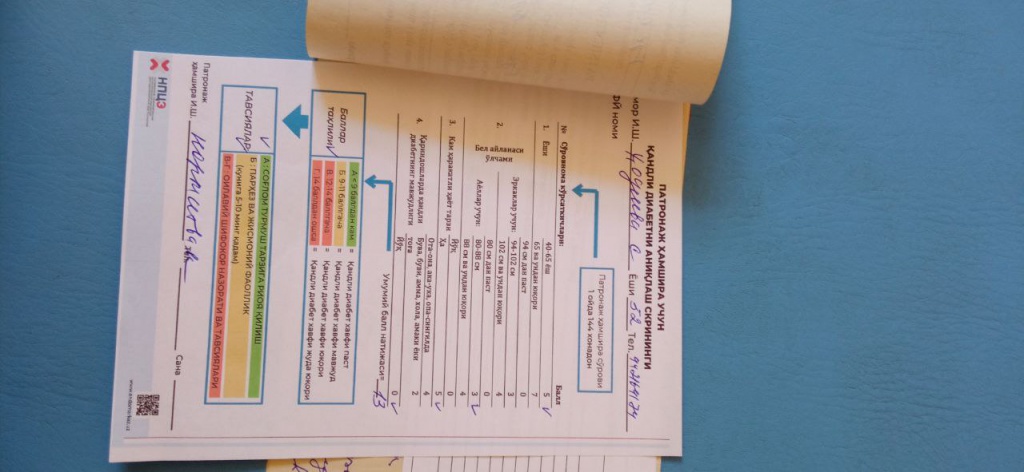 ПАТРОНАЖ ҲАМШИРА УЧУН
ҚАНДЛИ ДИАБЕТНИ АНИҚЛАШ СКРИНИНГИ
мор И.Ш. Кодирова С Ёши 52 Тел.
ФЙ НОМИ
Патронаж ҳамшира сўрови
1 ойда 144 хонадон
№ Сўровнома кўрсаткичлари: Балл
1. Ёши 40-65 ёш 5 ✓
65 ва ундан юқори 7
2. Бел айланаси ўлчами
Эркаклар учун: 94 см дан паст 0
94-102 см 3
102 см ва ундан юқори 4
Аёллар учун: 80 см дан паст 0
80-88 см 3 ✓
88 см ва ундан юқори 4
3. Кам ҳаракатли ҳаёт тарзи Йўқ 0
Ҳа 5 ✓
4. Қариндошларда қандли диабетнинг мавжудлиги
Ота-она, ака-ука, опа-сингилда 4
Бува, буви, амма, хола, амаки ёки тоға 2
Йўқ 0 ✓
Умумий балл натижаси= 13
Баллар таҳлили ✓
А < 9 баллдан кам = Қандли диабет хавфи паст
Б. 9-11 баллгача = Қандли диабет хавфи мавжуд
В. 12-14 баллгача = Қандли диабет хавфи юқори
Г. 14 баллдан ошса = Қандли диабет хавфи жуда юқори
ТАВСИЯЛАР ✓
А : СОҒЛОМ ТУРМУШ ТАРЗИГА РИОЯ ҚИЛИШ
Б : ПАРҲЕЗ ВА ЖИСМОНИЙ ФАОЛЛИК
(кунига 5-10 минг қадам)
В-Г : ОИЛАВИЙ ШИФОКОР НАЗОРАТИ ВА ТАВСИЯЛАРИ
Патронаж
ҳамшира И.Ш. Сана
НПЦЭ